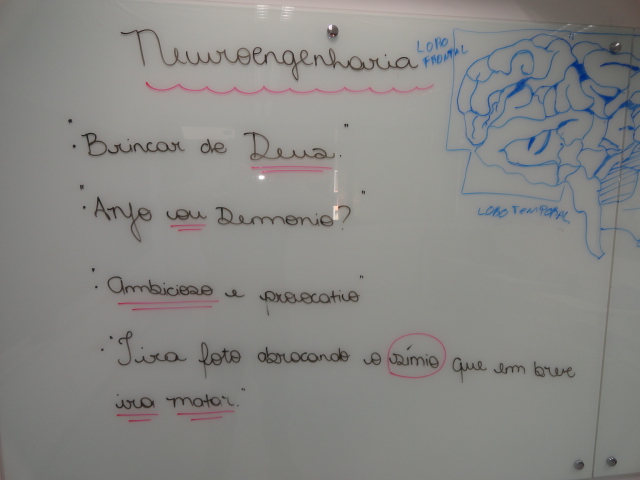 Neuroengenharia
LOBO
FRONTAL
"Brincar de Deus."
"Anjo ou Demonio?"
LOBO TEMPORAL
"Ambicioso e provocativo"
"Tira foto abraçando o símio que em breve
ira matar."